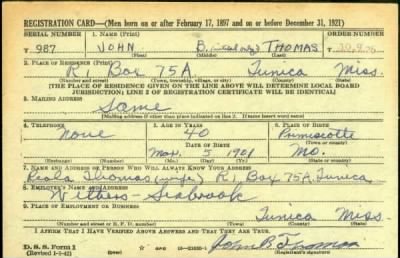 REGISTRATION CARD—(Men born on or after February 17, 1897 and on or before December 31, 1921)
SERIAL NUMBER 1. NAME (Print) ORDER NUMBER
T 987 JOHN B. (initial only) THOMAS
(First) (Middle) (Last)
2. PLACE OF RESIDENCE (Print)
R1 Box 75A. Tunica Miss.
(Number and street) (Town, township, village, or city) (County) (State)
[THE PLACE OF RESIDENCE GIVEN ON THE LINE ABOVE WILL DETERMINE LOCAL BOARD
JURISDICTION; LINE 2 OF REGISTRATION CERTIFICATE WILL BE IDENTICAL]
3. MAILING ADDRESS
Same
[Mailing address if other than place indicated on line 2. If same insert word same]
4. TELEPHONE 5. AGE IN YEARS 6. PLACE OF BIRTH
None 40 Pemiscotte
DATE OF BIRTH
Mar. 5 1901 Mo.
(Exchange) (Number) (Mo.) (Day) (Yr.) (State or country)
7. NAME AND ADDRESS OF PERSON WHO WILL ALWAYS KNOW YOUR ADDRESS
Thomas (wife) R1 Box 75A, Tunica
8. EMPLOYER'S NAME AND ADDRESS
Withers - Seabrook
9. PLACE OF EMPLOYMENT OR BUSINESS
Tunica Miss.
(Number and street or R. F. D. number) (Town) (County) (State)
I AFFIRM THAT I HAVE VERIFIED ABOVE ANSWERS AND THAT THEY ARE TRUE.
D. S. S. Form 1
(Revised 1-1-42) (over) John B Thomas
(Registrant's signature)